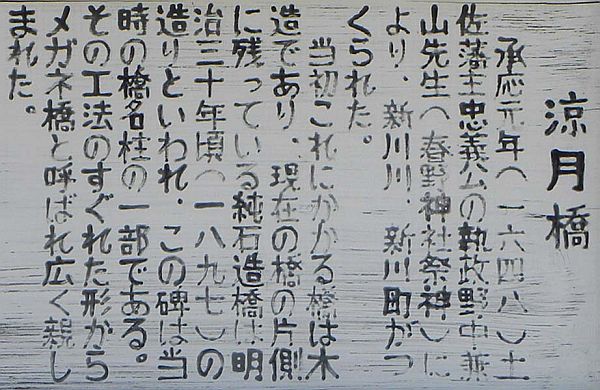 涼月橋
承応元年(一六四八)土
佐藩主忠義公の執政野中兼
山先生(春野神社祭神)に
より、新川川、新川町がつ
くられた。
当初これにかかる橋は木
造であり、現在の橋の片側
に残っている純石造橋は明
治三十年頃(一八九七)の
造りといわれ、この碑は当
時の橋名柱の一部である。
その工法のすぐれた形から
メガネ橋と呼ばれ広く親し
まれた。